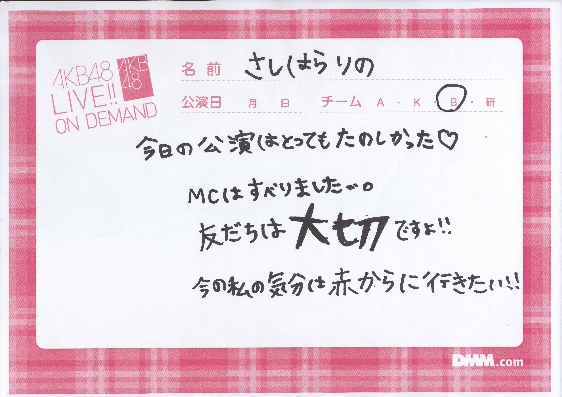 AKB48
LIVE!!
ON DEMAND
AKB
48
名前 さしはらりの
公演日 月 日 チーム A・K・B・研
今日の公演はとってもたのしかった♡
MCはすべりました〜。
友だちは大切ですよ!!
今の私の気分は赤からに行きたい!!
DMM.com